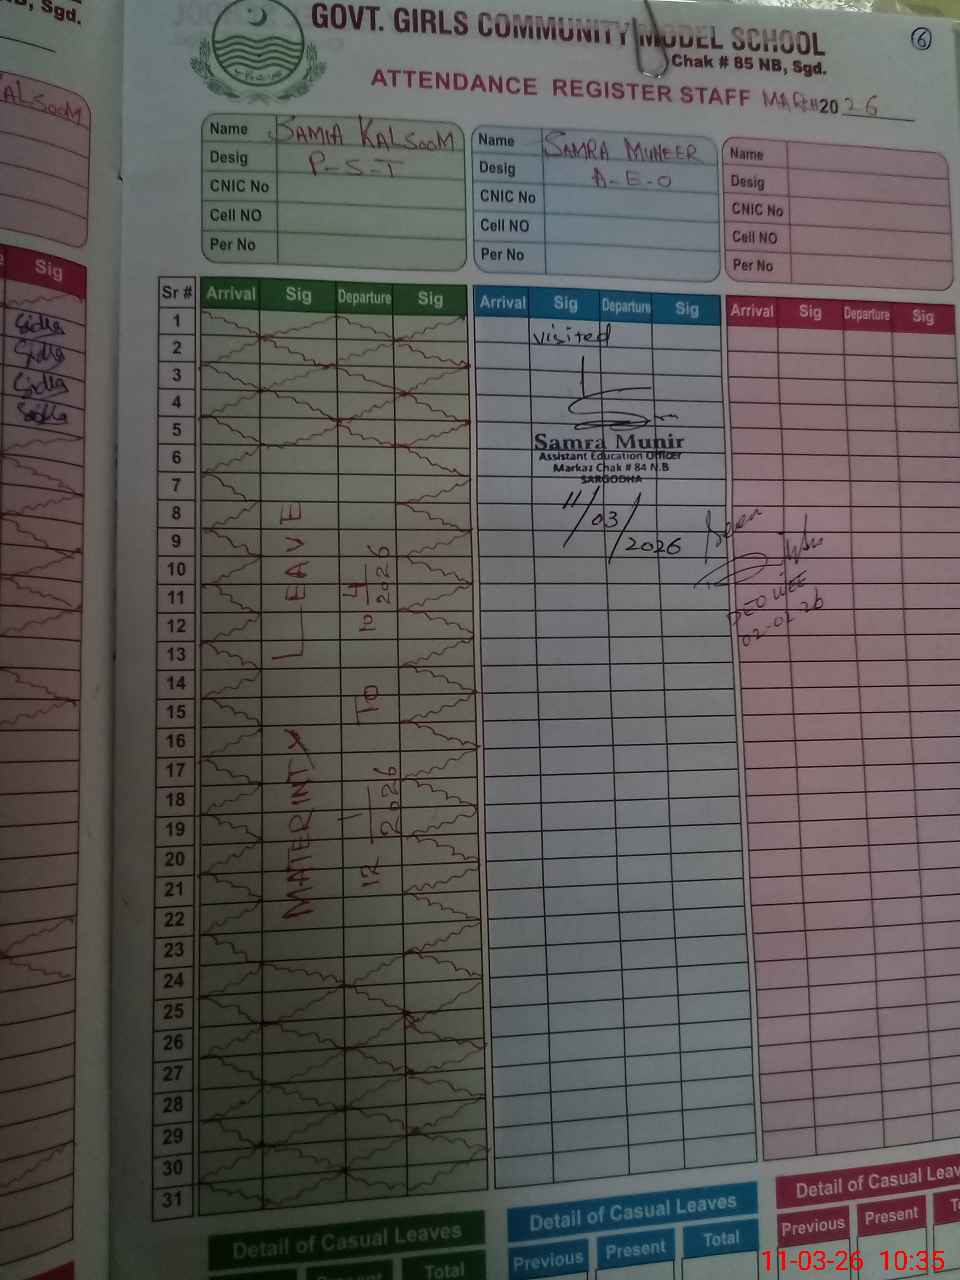 GOVT. GIRLS COMMUNITY MODEL SCHOOL
Chak # 85 NB, Sgd.
6
ATTENDANCE REGISTER STAFF MARCH 2026
Name SAMIA KALSOOM
Desig P-S-T
CNIC No
Cell NO
Per No
Name SAMRA MUNEER
Desig A-E-O
CNIC No
Cell NO
Per No
Name
Desig
CNIC No
Cell NO
Per No
Sr # Arrival Sig Departure Sig Arrival Sig Departure Sig Arrival Sig Departure Sig
1
2
3
4
5
6
7
8
9
10
11
12
13
14
15
16
17
18
19
20
21
22
23
24
25
26
27
28
29
30
31
MATERINTY LEAVE
12 1 2026 TO 12 4 2026
visited
Samra Munir
Assistant Education Officer
Markaz Chak # 84 N.B
SARGODHA
11/03/2026
Seen
DEO WEE
Detail of Casual Leaves
Present Total
Detail of Casual Leaves
Previous Present Total
Detail of Casual Leav
Previous Present
, Sgd.
ALSOOM
Sig
Sidra
Sidra
Sidra
11-03-26 10:35